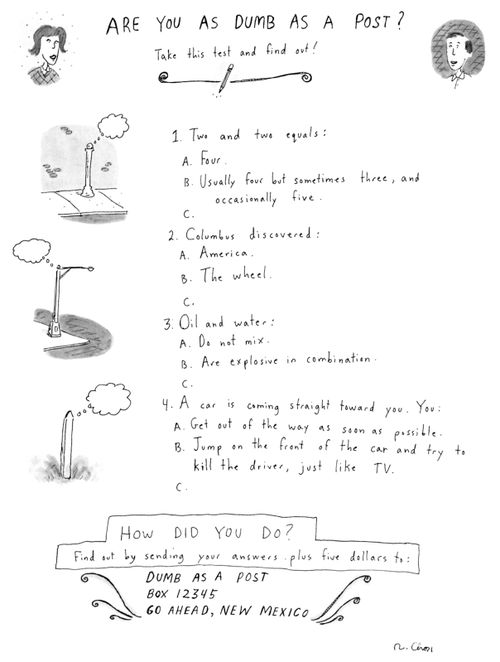 ARE YOU AS DUMB AS A POST?
Take this test and find out!
1. Two and two equals:
A. Four.
B. Usually four but sometimes three, and
occasionally five.
C.
2. Columbus discovered:
A. America.
B. The wheel.
C.
3. Oil and water:
A. Do not mix.
B. Are explosive in combination.
C.
4. A car is coming straight toward you. You:
A. Get out of the way as soon as possible.
B. Jump on the front of the car and try to
kill the driver, just like TV.
C.
HOW DID YOU DO?
Find out by sending your answers plus five dollars to:
DUMB AS A POST
BOX 12345
GO AHEAD, NEW MEXICO
R. Chast